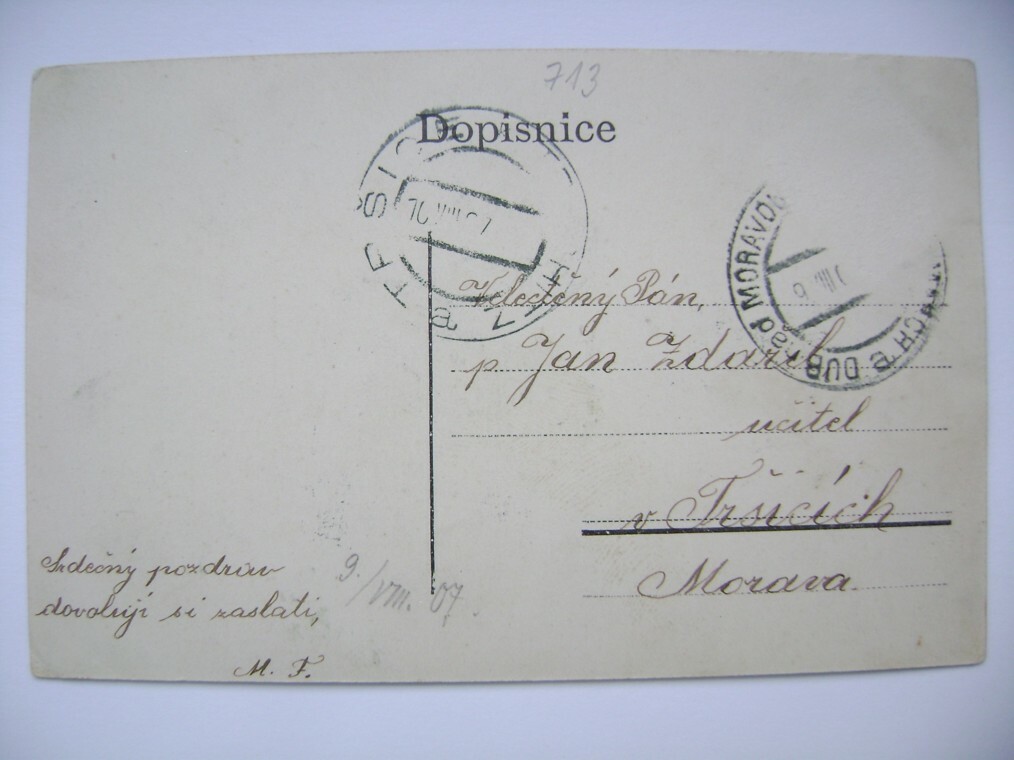 713
Dopisnice
DUB nad MORAVOU
9 VIII 0
Velectěný Pán,
p. Jan Zdařil
učitel
v Tršicích
Morava.
Srdečný pozdrav
dovoluji si zaslati,
M. F.
9./VIII. 07.